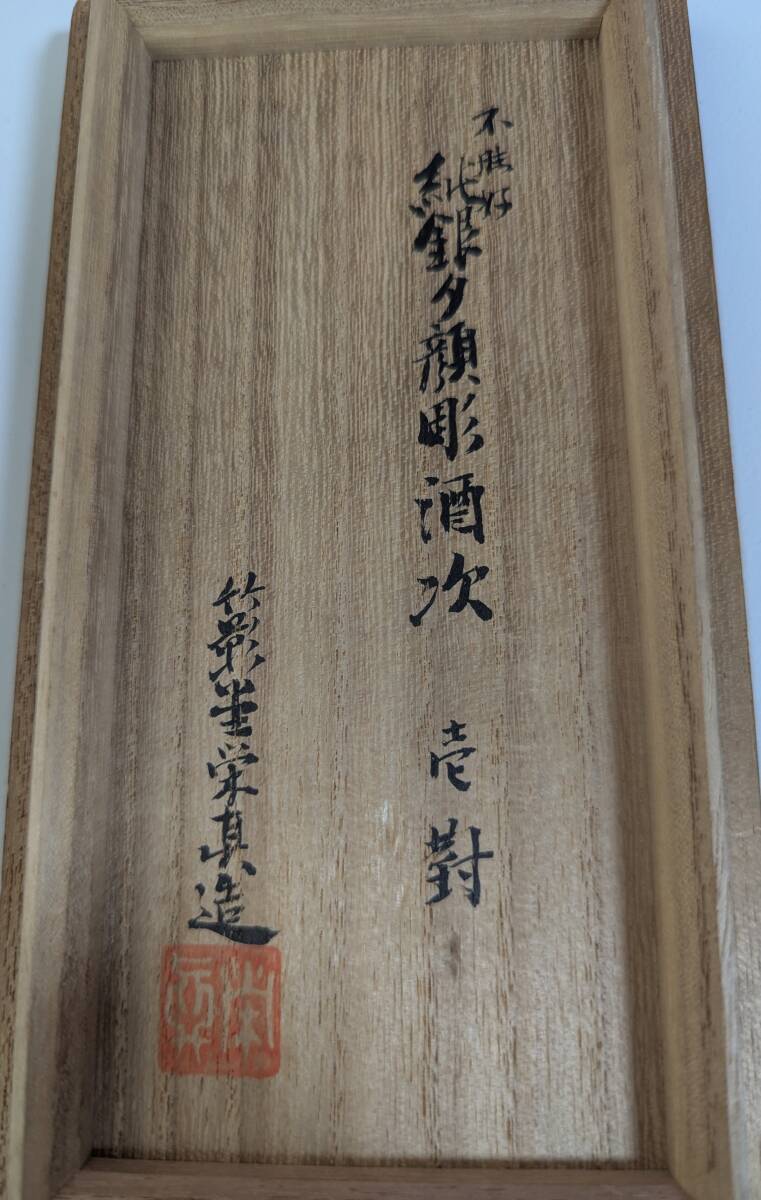 純銀夕顔彫酒次 壱對
竹影堂栄真造